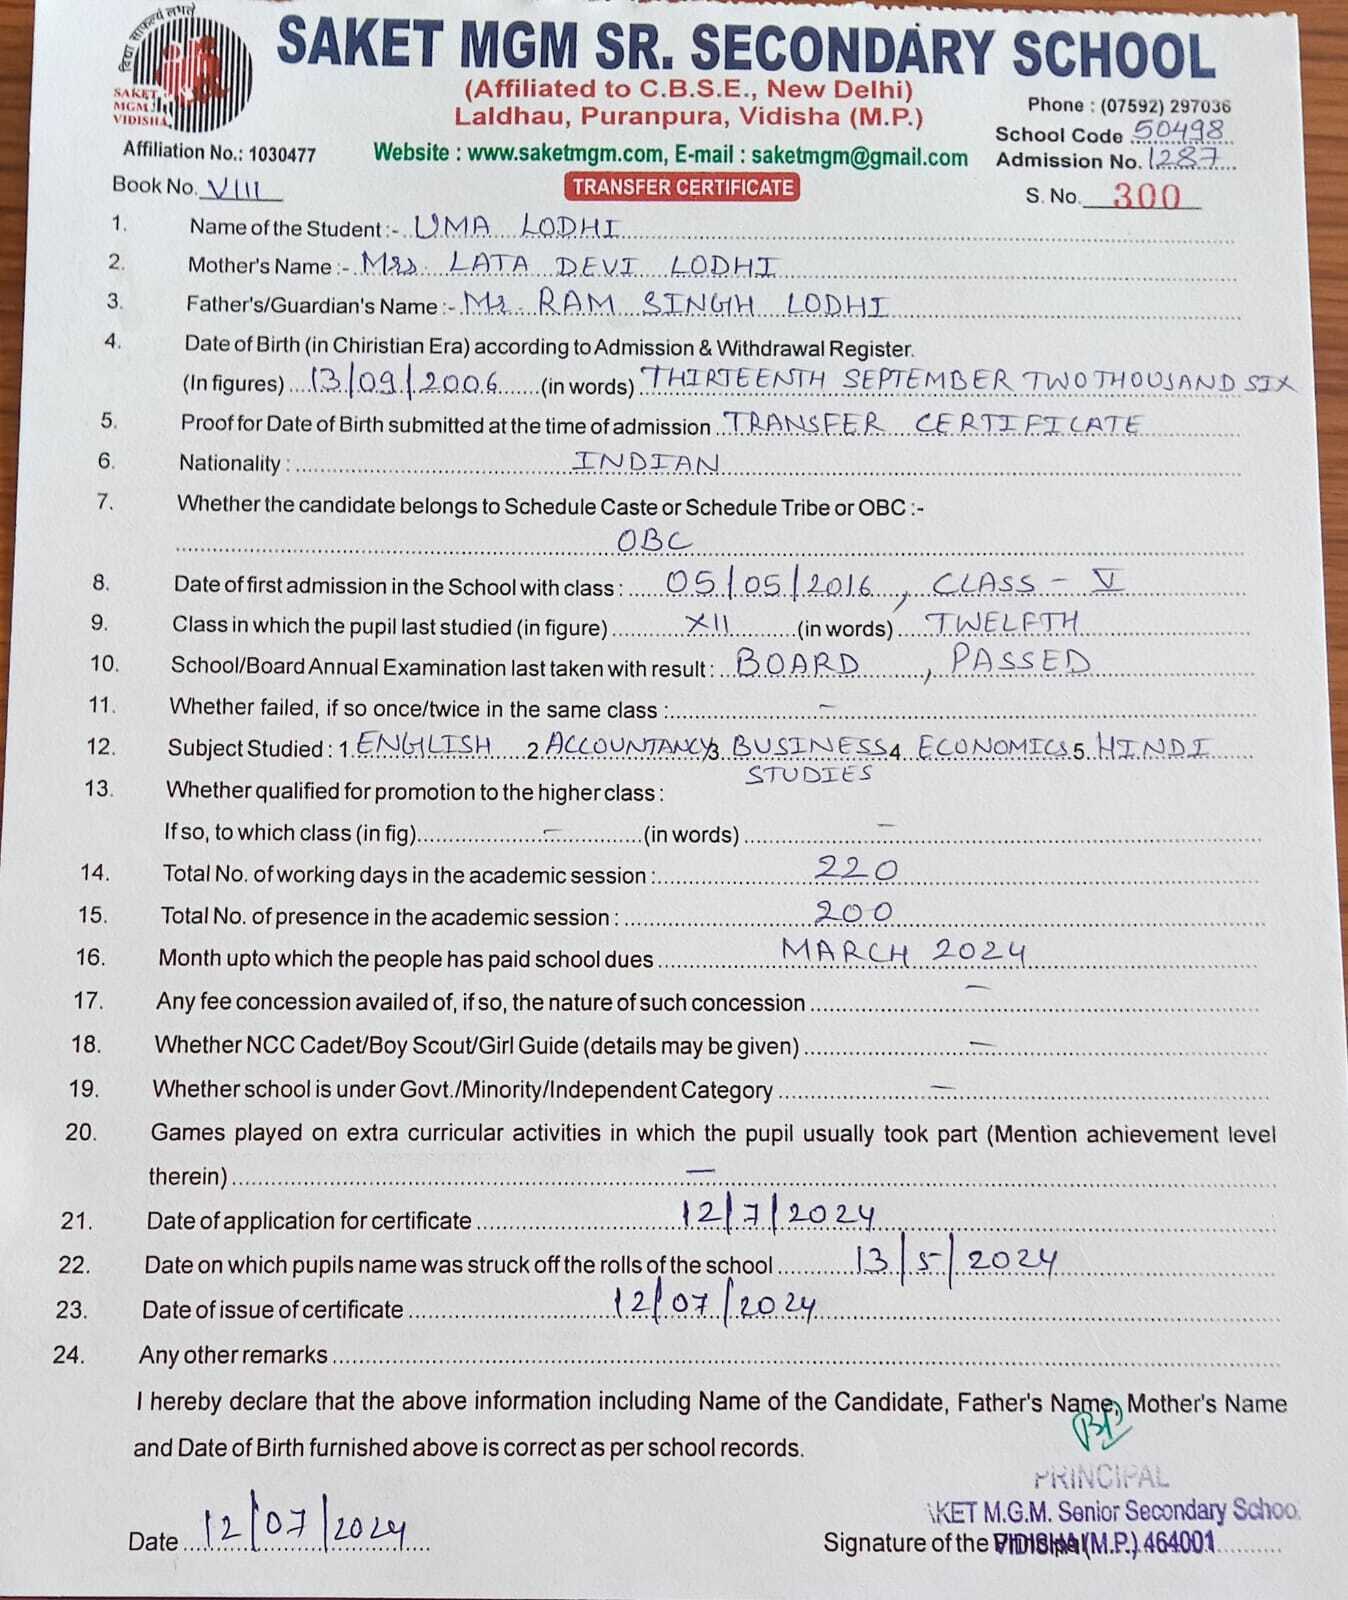 विद्या साफल्यं लभते
SAKET MGM SR. SECONDARY SCHOOL
SAKET
MGM
VIDISHA
(Affiliated to C.B.S.E., New Delhi)
Laldhau, Puranpura, Vidisha (M.P.)
Phone : (07592) 297036
School Code 50498
Affiliation No.: 1030477 Website : www.saketmgm.com, E-mail : saketmgm@gmail.com Admission No. 1287
Book No. VIII TRANSFER CERTIFICATE S. No. 300
1. Name of the Student :- UMA LODHI
2. Mother's Name :- Mrs. LATA DEVI LODHI
3. Father's/Guardian's Name :- Mr. RAM SINGH LODHI
4. Date of Birth (in Chiristian Era) according to Admission & Withdrawal Register.
(In figures) 13/09/2006 (in words) THIRTEENTH SEPTEMBER TWO THOUSAND SIX
5. Proof for Date of Birth submitted at the time of admission TRANSFER CERTIFICATE
6. Nationality : INDIAN
7. Whether the candidate belongs to Schedule Caste or Schedule Tribe or OBC :-
OBC
8. Date of first admission in the School with class : 05/05/2016, CLASS - V
9. Class in which the pupil last studied (in figure) XII (in words) TWELFTH
10. School/Board Annual Examination last taken with result : BOARD, PASSED
11. Whether failed, if so once/twice in the same class : -
12. Subject Studied : 1. ENGLISH 2. ACCOUNTANCY 3. BUSINESS 4. ECONOMICS 5. HINDI
STUDIES
13. Whether qualified for promotion to the higher class :
If so, to which class (in fig) - (in words) -
14. Total No. of working days in the academic session : 220
15. Total No. of presence in the academic session : 200
16. Month upto which the people has paid school dues MARCH 2024
17. Any fee concession availed of, if so, the nature of such concession -
18. Whether NCC Cadet/Boy Scout/Girl Guide (details may be given) -
19. Whether school is under Govt./Minority/Independent Category -
20. Games played on extra curricular activities in which the pupil usually took part (Mention achievement level
therein) -
21. Date of application for certificate 12/7/2024
22. Date on which pupils name was struck off the rolls of the school 13/5/2024
23. Date of issue of certificate 12/07/2024
24. Any other remarks
I hereby declare that the above information including Name of the Candidate, Father's Name, Mother's Name
and Date of Birth furnished above is correct as per school records.
PRINCIPAL
AKET M.G.M. Senior Secondary Schoo
Date 12/07/2024 Signature of the Principal
VIDISHA (M.P.) 464001